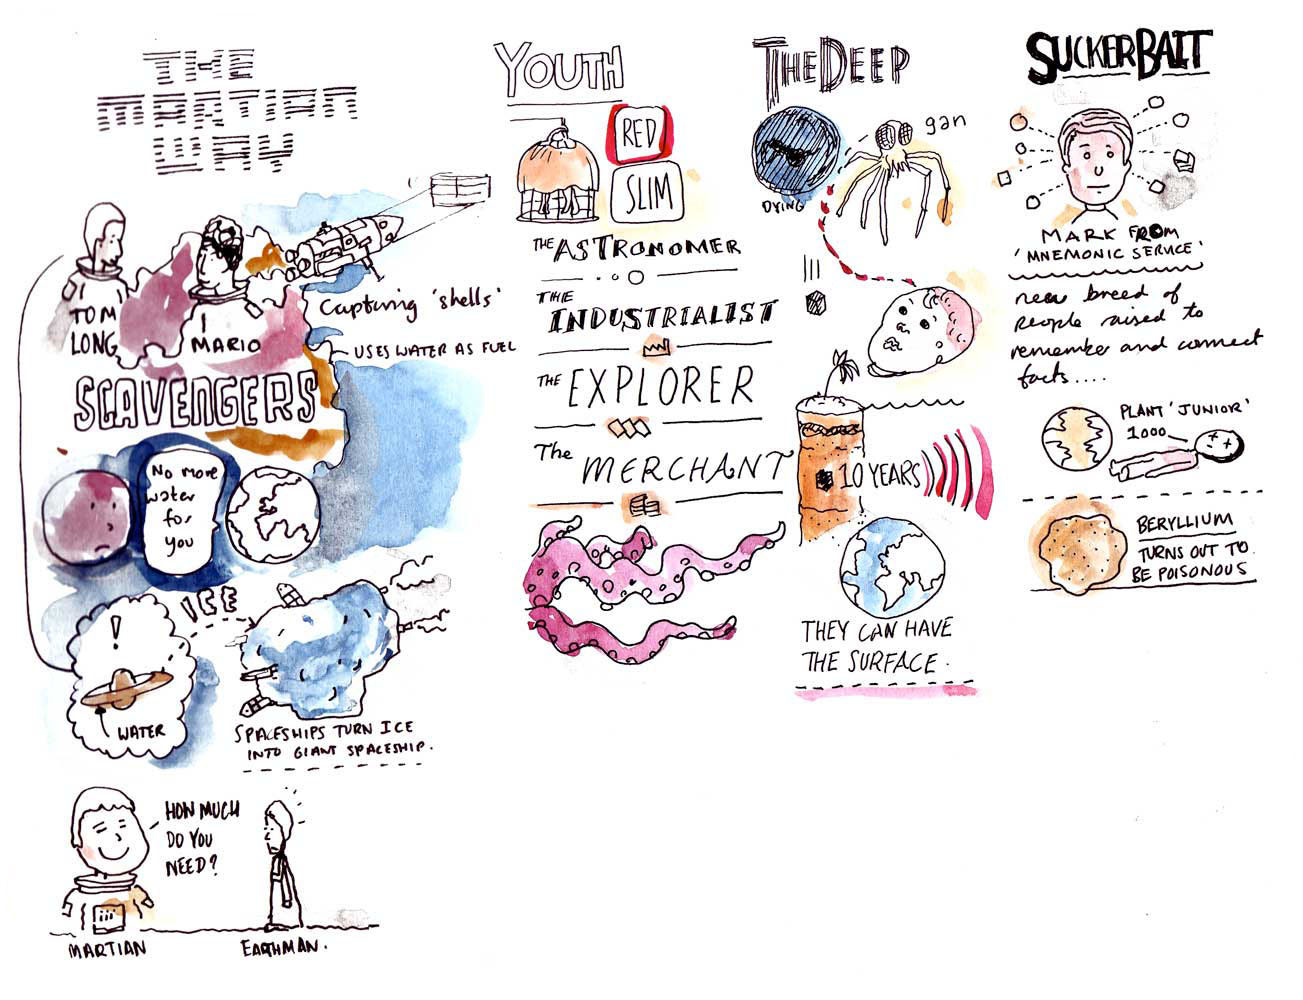 THE
MARTIAN
WAY
TOM
LONG
MARIO
Capturing 'shells'
USES WATER AS FUEL
SCAVENGERS
No more
water
for
you
ICE
!
WATER
SPACESHIPS TURN ICE
INTO GIANT SPACESHIP.
HOW MUCH
DO YOU
NEED?
MARTIAN
EARTHMAN.
YOUTH
RED
SLIM
THE ASTRONOMER
THE
INDUSTRIALIST
THE EXPLORER
The MERCHANT
THE DEEP
gan
DYING
10 YEARS
THEY CAN HAVE
THE SURFACE.
SUCKER BAIT
MARK FROM
'MNEMONIC SERVICE'
new breed of
people raised to
remember and connect
facts....
PLANT 'JUNIOR'
1000
BERYLLIUM
TURNS OUT TO
BE POISONOUS